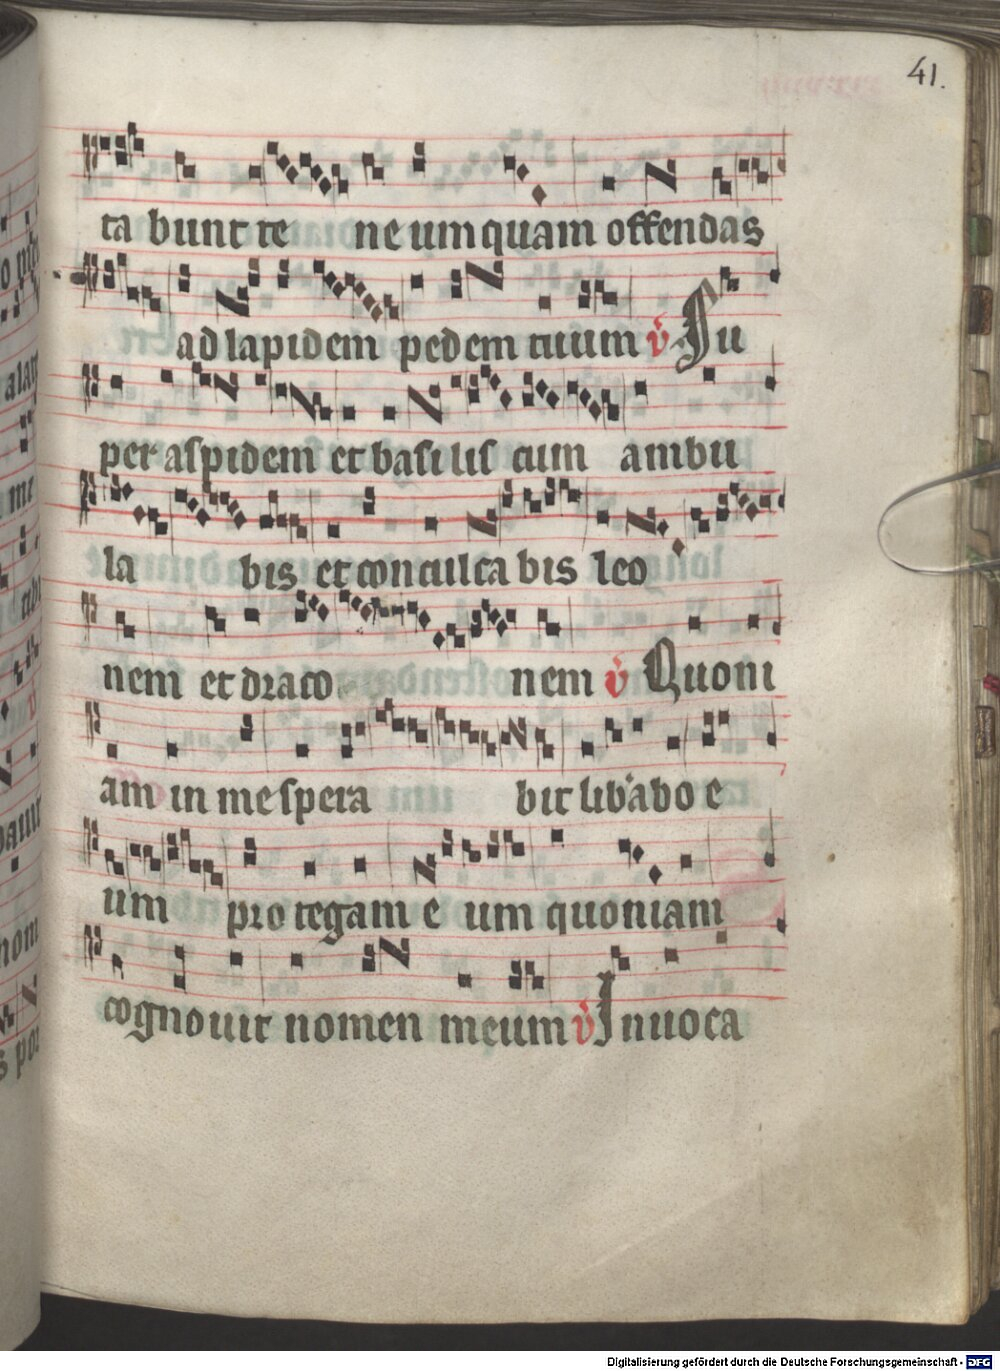 41.
ta bunt te ne um quam offendas
ad lapidem pedem tuum v Su
per aspidem et basi lis cum ambu
la bis et conculca bis leo
nem et draco nem v Quoni
am in me spera bit lib'abo e
um pro tegam e um quoniam
cognouit nomen meum v Inuoca
Digitalisierung gefördert durch die Deutsche Forschungsgemeinschaft - DFG